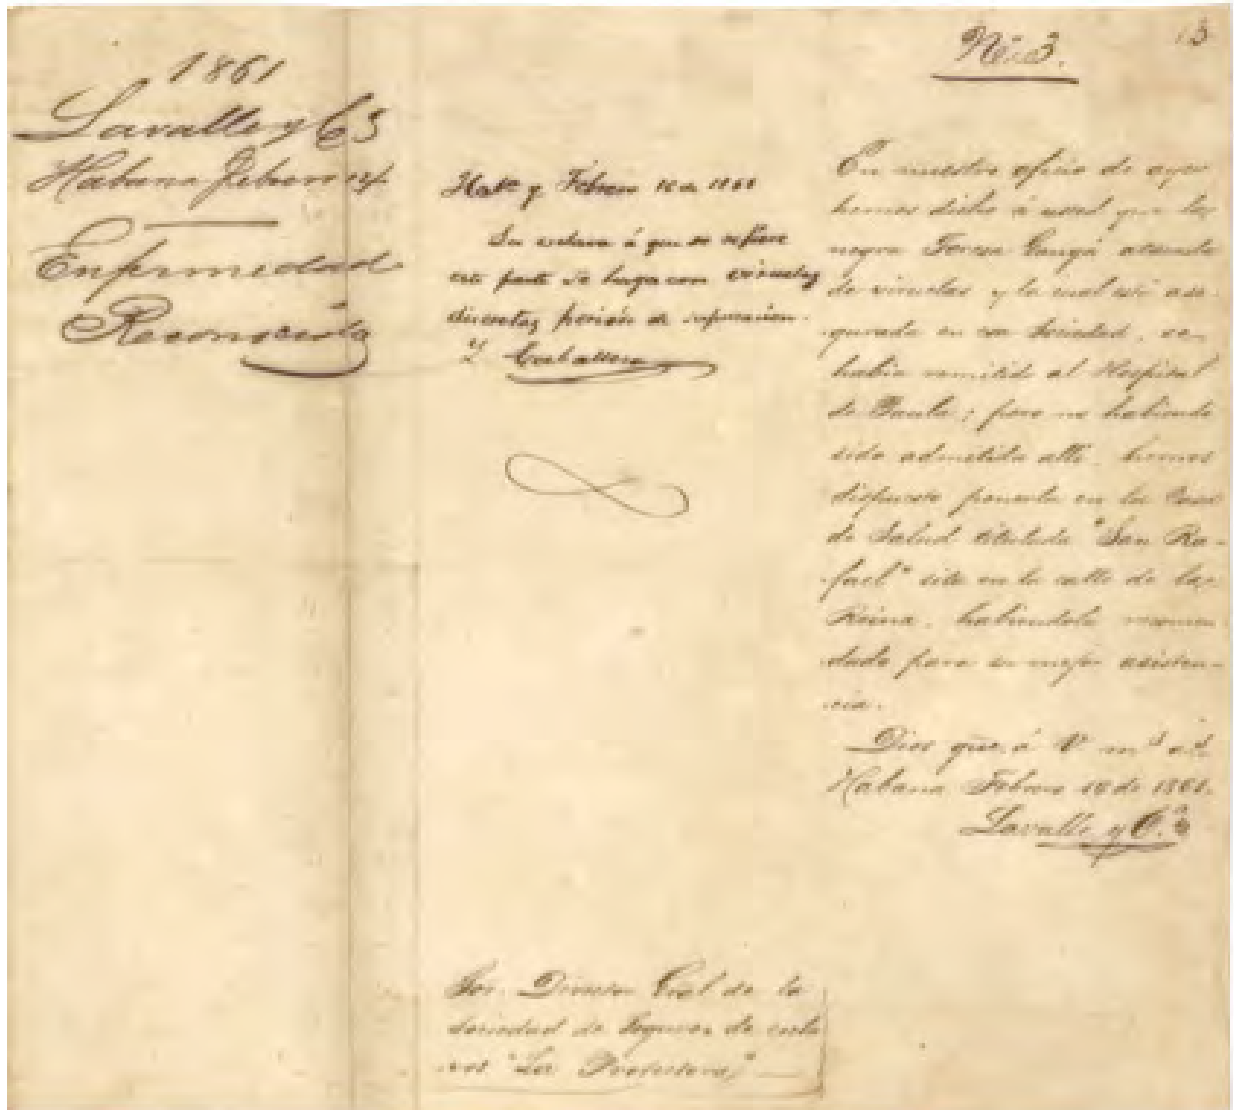 1861
Lavalle y Cª
Habana Febrero 14/.
Enfermedad
Reconocida
Habª y Febrero de 1861
La esclava á que se refiere
este parte se haya con viruelas
discretas, periodo de supuracion.
Caballero
Sor. Director Gral de la
Sociedad de Seguros de escla
vos "La Protectora"
Nº 3.
13
En nuestro oficio de ayer
hemos dicho á usted que la
negra Teresa Gangá atacada
de viruelas y la cual está ase-
gurada en esa Sociedad, se
había remitido al Hospital
de Paula; pero no habiendo
sido admitida allí, hemos
dispuesto ponerla en la Casa
de Salud titulada "San Ra-
fael" sita en la calle de la
Reina, habiendola recomen-
dado para su mejor asisten-
cia.
Dios gue. á V. mˢ aˢ.
Habana Febrero de 1861.
Lavalle y Cª